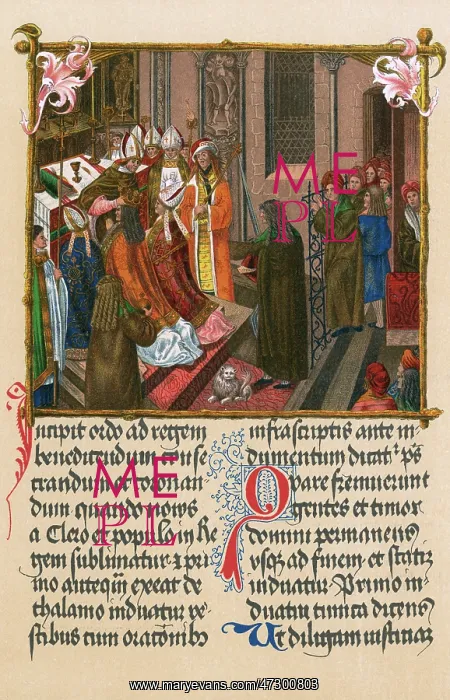 Incipit ordo ad regem
benedicendum conse
crandum et coronan
dum quando novis
a Clero et populo in Re
gem sublimatur et pri
mo anteq̄ exeat de
thalamo induatur ve
stibus cum oratonibꝫ
infrascriptis ante in-
dumentum dicat ps
Quare fremuerunt
gentes et timor
domini permanens
usqꝫ ad finem et statim
induatur Primo in-
duatur tunica dicens
Ut diligam iustitiam
ME
PL
ME
PL
www.maryevans.com/47300803